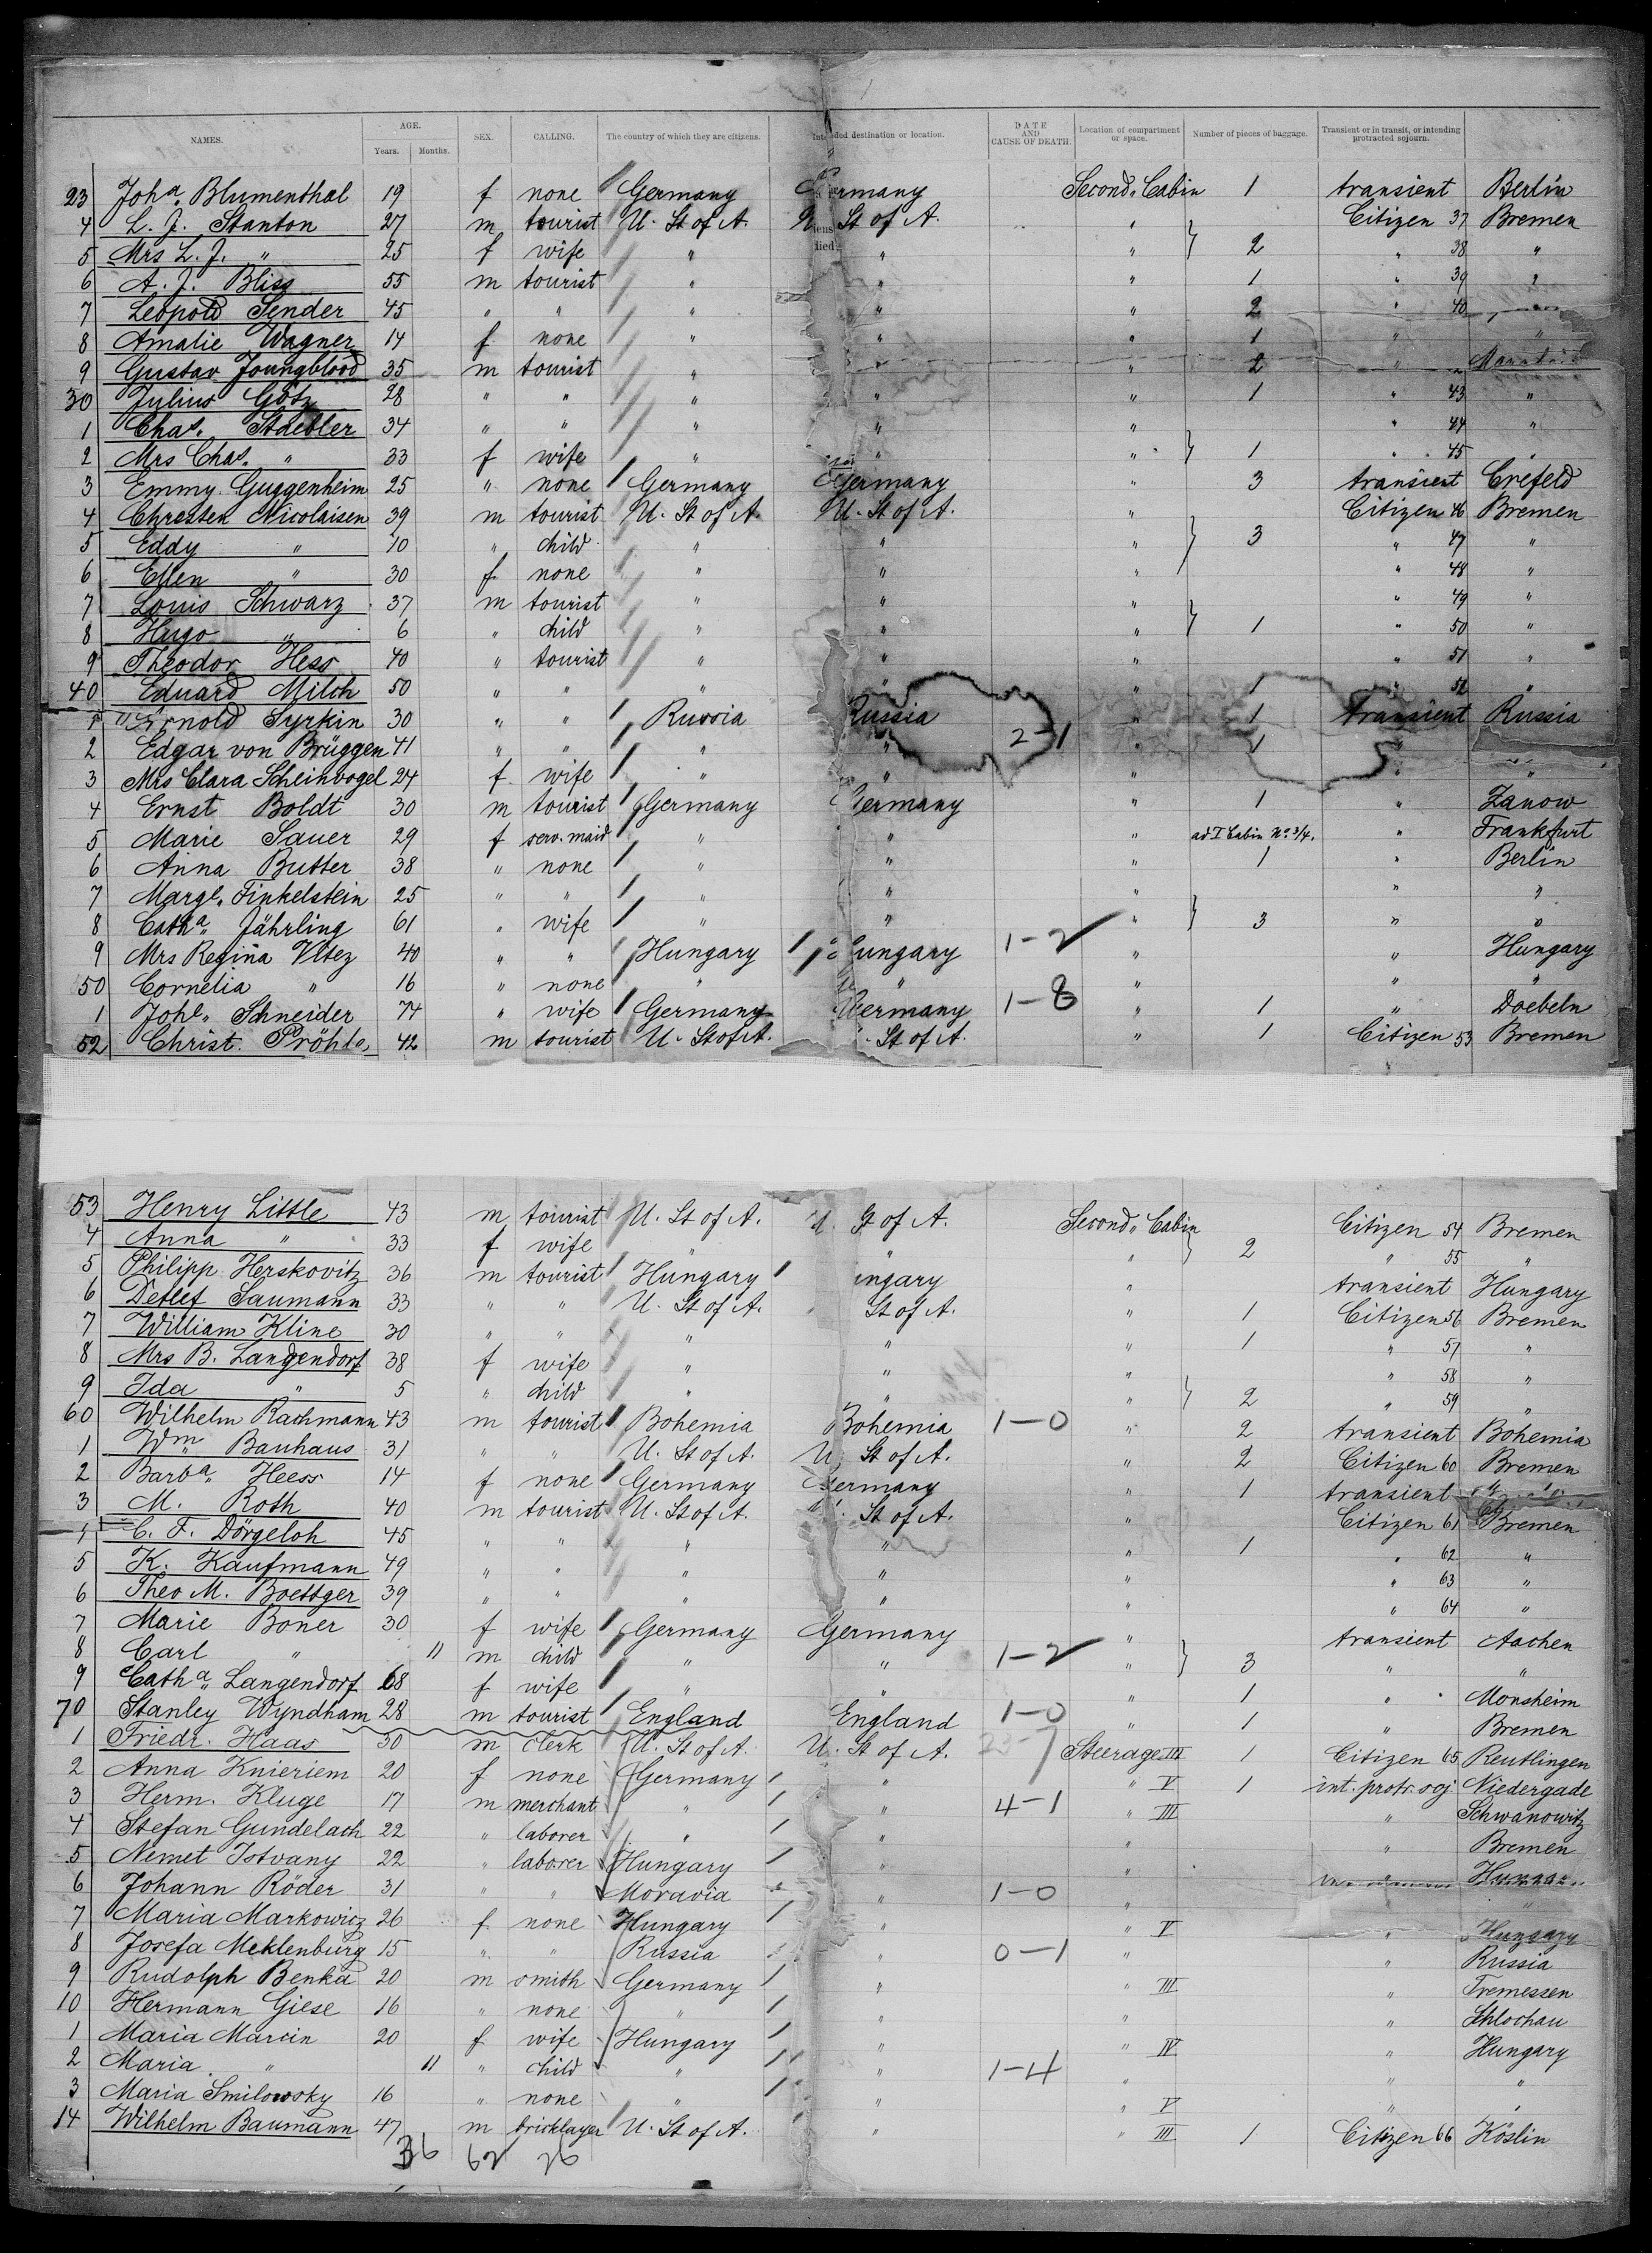 NAMES. AGE. Years. Months. SEX. CALLING. The country of which they are citizens. Intended destination or location. DATE AND CAUSE OF DEATH. Location of compartment or space. Number of pieces of baggage. Transient or in transit, or intending protracted sojourn.
23 Joha. Blumenthal 19 f none Germany Germany Second Cabin 1 transient Berlin
4 L. J. Stanton 27 m tourist U. St of A. U. St of A. " Citizen 37 Bremen
5 Mrs L. J. " 25 f wife " " " } 2 " 38 "
6 A. J. Bliss 55 m tourist " " " 1 " 39 "
7 Leopold Sender 45 " " " " " 2 " 40
8 Amalie Wagner 14 f none " " " 1 " "
9 Gustav Joungblood 35 m tourist " " " 2 "
30 Julius Götz 28 " " " " " 1 " 43 "
1 Chas. Staebler 34 " " " " " " 44 "
2 Mrs Chas. " 33 f wife " " " } 1 " 45 "
3 Emmy Guggenheim 25 " none Germany Germany " 3 transient Crefeld
4 Chresten Nicolaisen 39 m tourist U. St of A. U. St of A. " Citizen 46 Bremen
5 Eddy " 10 " child " " " } 3 " 47 "
6 Ellen " 30 f none " " " " 48 "
7 Louis Schwarz 37 m tourist " " " " 49 "
8 Hugo " 6 " child " " " } 1 " 50 "
9 Theodor Hess 40 " tourist " " " " 51 "
40 Eduard Milch 50 " " " " " 1 " 52 "
1 Arnold Syrkin 30 " " Russia Russia " 1 transient Russia
2 Edgar von Brüggen 41 " " " " 2-1 " 1 "
3 Mrs Clara Scheinvogel 24 f wife " " " " "
4 Ernst Boldt 30 m tourist Germany Germany " 1 " Zanow
5 Marie Sauer 29 f serv. maid " " " ad I Cabin No 3/4. " Frankfurt
6 Anna Butter 38 " none " " " 1 " Berlin
7 Marge. Finkelstein 25 " " " " " " "
8 Catha. Jährling 61 " wife " " " } 3 " "
9 Mrs Regina Vltez 40 " " Hungary Hungary 1-2 " " Hungary
50 Cornelia " 16 " none " " " " "
1 Johe. Schneider 74 " wife Germany Germany 1-8 " 1 " Doebeln
52 Christ. Pröhle 42 m tourist U. St of A. St of A. " 1 Citizen 53 Bremen
53 Henry Little 43 m tourist U. St of A. U. St of A. Second Cabin Citizen 54 Bremen
4 Anna " 33 f wife " " " } 2 " 55 "
5 Philipp Herskovitz 36 m tourist Hungary ungary " transient Hungary
6 Detlef Saumann 33 " " U. St of A. St of A. " 1 Citizen 56 Bremen
7 William Kline 30 " " " " " 1 " 57 "
8 Mrs B. Langendorf 38 f wife " " " " 58 "
9 Ida " 5 " child " " " } 2 " 59 "
60 Wilhelm Rachmann 43 m tourist Bohemia Bohemia 1-0 " 2 transient Bohemia
1 Wm Bauhaus 31 " " U. St of A. U. St of A. " 2 Citizen 60 Bremen
2 Barba. Heess 14 f none Germany Germany " 1 transient
3 M. Roth 40 m tourist U. St of A. St of A. " Citizen 61 Bremen
4 C. F. Dörgeloh 45 " " " " " 1 " 62 "
5 K. Kaufmann 49 " " " " " " 63 "
6 Theo M. Boettger 39 " " " " " " 64 "
7 Marie Boner 30 f wife Germany Germany " transient Aachen
8 Carl " 11 m child " " 1-2 " } 3 " "
9 Catha. Langendorf 68 f wife " " " 1 " Monsheim
70 Stanley Wyndham 28 m tourist England England 1-0 " 1 " Bremen
1 Friedr. Haas 30 m clerk U. St of A. U. St of A. 23-7 Steerage III 1 Citizen 65 Reutlingen
2 Anna Knieriem 20 f none Germany " " V 1 int. protr. soj Niedergade
3 Herm. Kluge 17 m merchant " " 4-1 " III " Schwanowitz
4 Stefan Gundelach 22 " laborer " " " " Bremen
5 Nemet Istvany 22 " laborer Hungary " "
6 Johann Röder 31 " " Moravia " 1-0 " " "
7 Maria Markowicz 26 f none Hungary " " V " Hungary
8 Josefa Meklenburg 15 " " Russia " 0-1 " " Russia
9 Rudolph Benka 20 m smith Germany " " III " Tremessen
10 Hermann Giese 16 " none " " " " Schlochau
1 Maria Marcin 20 f wife Hungary " " IV " Hungary
2 Maria " 11 " child " " 1-4 " " "
3 Maria Smilowsky 16 " none " " " V " "
14 Wilhelm Baumann 47 m bricklayer U. St of A. " " III 1 Citizen 66 Köslin
36 62 26